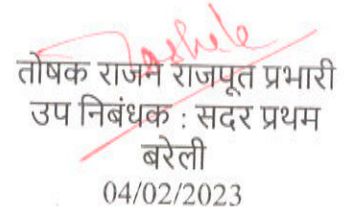 तोषक राजन राजपूत प्रभारी
उप निबंधक : सदर प्रथम
बरेली
04/02/2023